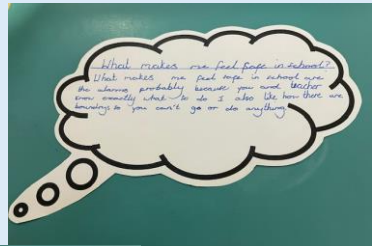 What makes me feel safe in school?
What makes me feel safe in school are
the alarms probably because you and teacher
know exactly what to do I also like how there are
boundrys so you can't go or do anything